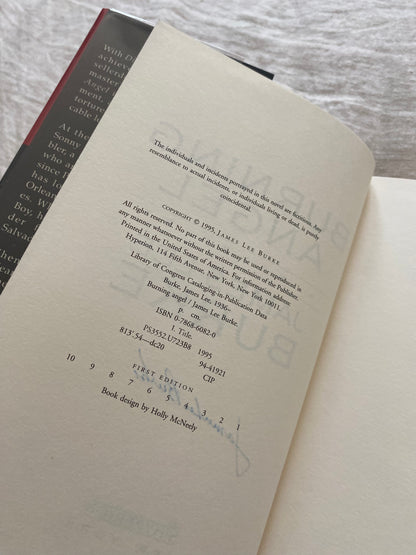 With D
achiev
master
Angel
ment,
torture
cable h
At the
Sonny
bler, a
who a
since
has lo
Orlea
es. Wh
Boy, h
der.
Salvad
The individuals and incidents portrayed in this novel are fictitious. Any
resemblance to actual incidents, or individuals living or dead, is purely
coincidental.
COPYRIGHT © 1995, JAMES LEE BURKE
All rights reserved. No part of this book may be used or reproduced in
any manner whatsoever without the written permission of the Publisher.
Printed in the United States of America. For information address:
Hyperion, 114 Fifth Avenue, New York, New York 10011.
Library of Congress Cataloging-in-Publication Data
Burke, James Lee, 1936–
Burning angel / James Lee Burke.
p. cm.
ISBN 0-7868-6082-0
I. Title.
PS3552.U723B8 1995
813'.54—dc20 94-41921
CIP
FIRST EDITION
10 9 8 7 6 5 4 3 2 1
Book design by Holly McNeely